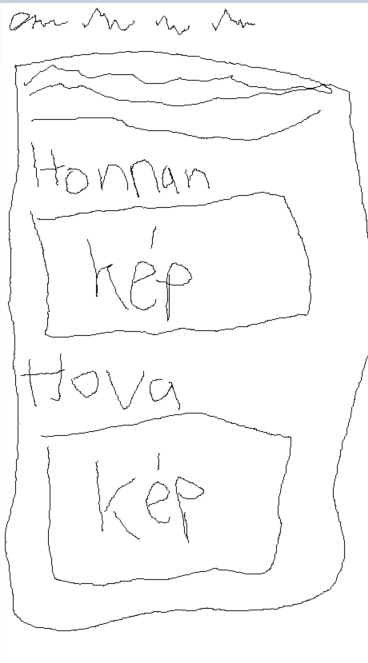 Honnan
kép
Hova
kép